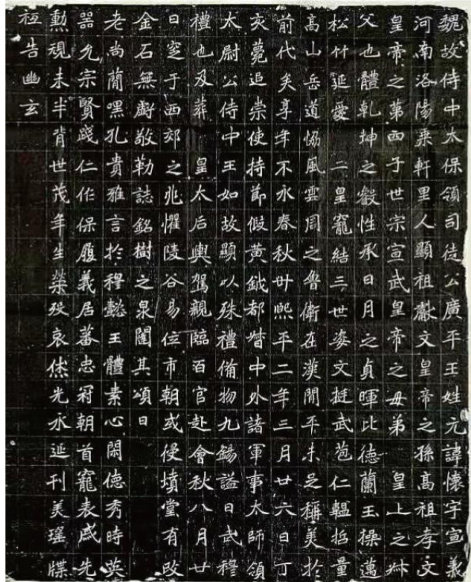 魏故侍中太保領司徒公廣平王姓元諱懷字宣義
河南洛陽乘軒里人顯祖獻文皇帝之孫高祖孝文
皇帝之第四子世宗宣武皇帝之母弟 皇上之叔
父也體乾坤之叡性承日月之貞暉比德蘭玉操邁
松竹延愛 二皇寵結三世姿文挺武苞仁韞哲量
高山岳道協風雲周之魯衛在漢間平未足稱美於
前代矣享年不永春秋卅熙平二年三月廿六日丁
亥薨追崇使持節假黃鉞都督中外諸軍事太師領
太尉公侍中王如故顯以殊禮備物九錫謚曰武穆
禮也及葬 皇太后輿駕親臨百官赴會秋八月廿
日窆于西郊之兆懼陵谷易位市朝或侵墳堂有改
金石無虧敬勒誌銘樹之泉闥其頌曰
老尚簡嘿孔貴雅言於穆懿王體素心閑德秀時英
器允宗賢踐仁作保履義居蕃忠冠朝首寵表戚先
勳視未半背世茂年生榮歿哀休光永延刊美瑤牒
祗告幽玄